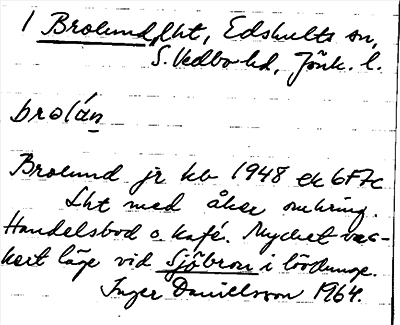 1 Brolund, lht, Edshults sn,
S. Vedbo hd, Jönk. l.
brolán
Brolund jr kb 1948 ek 6F7c
Lht med åker omkring.
Handelsbod o. kafé. Mycket vac-
kert läge vid Sjöbron i lövdunge.
Inger Danielsson 1964.